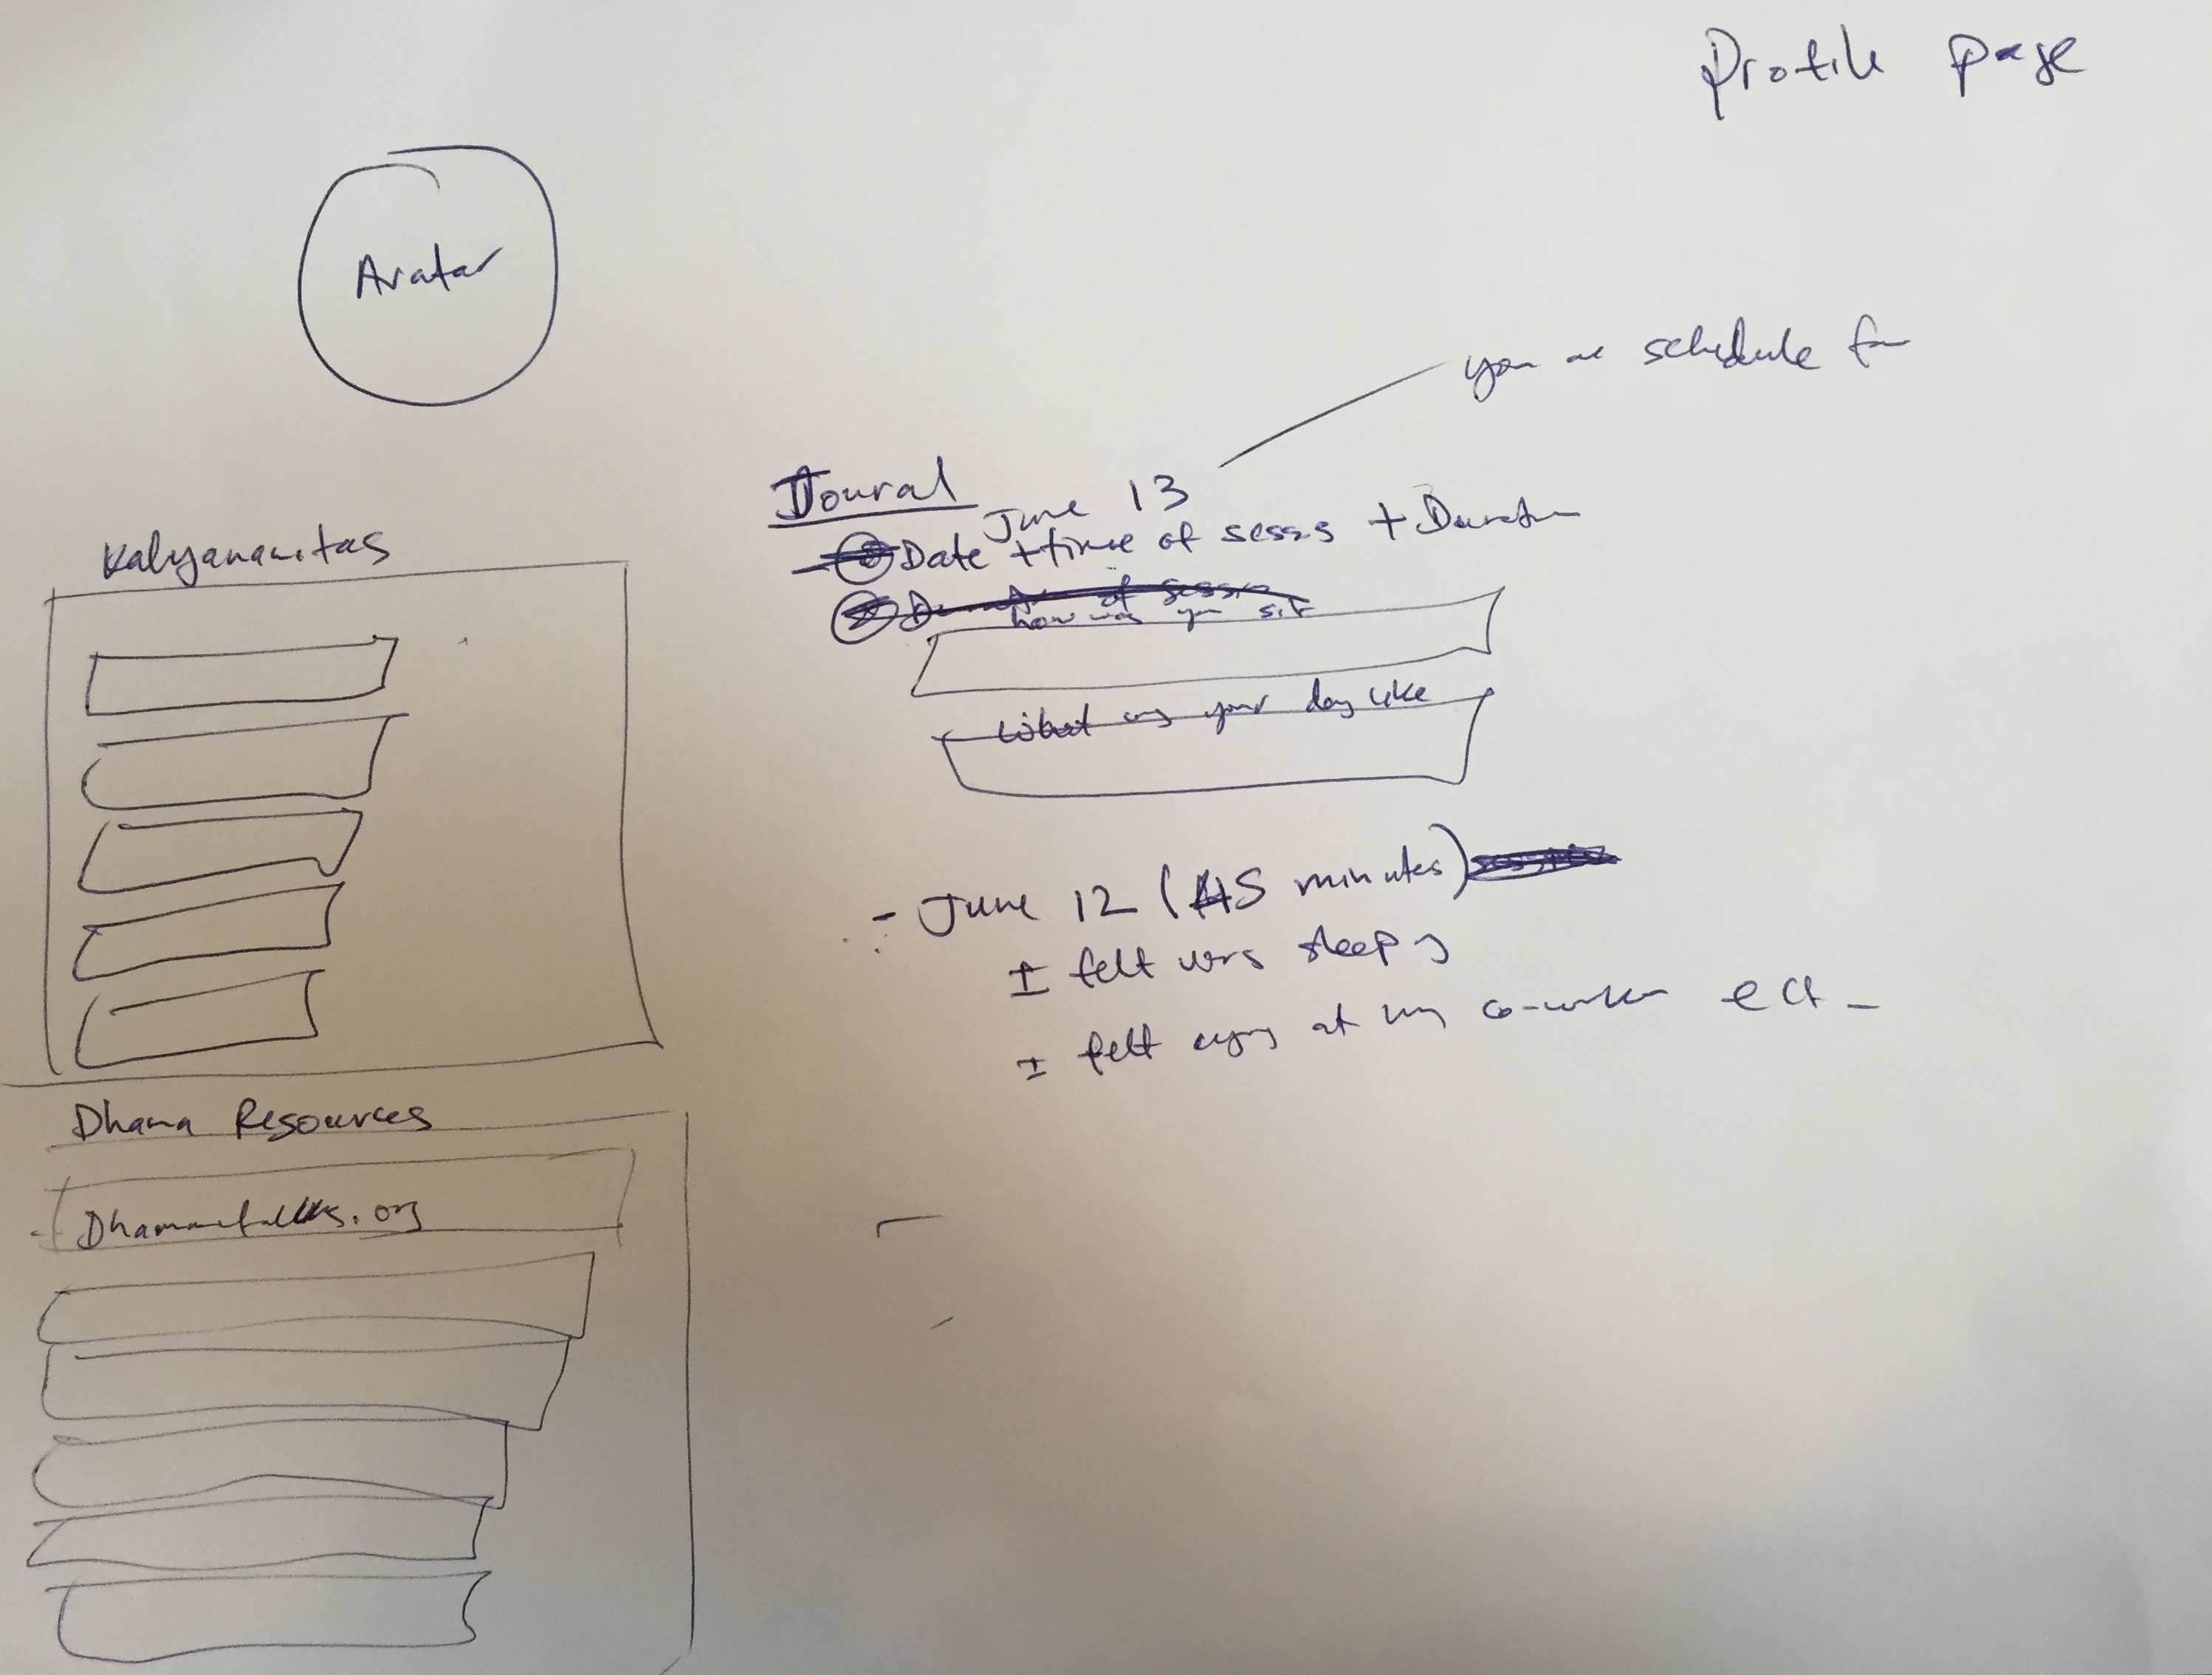 Profile page
Avatar
you are schedule for
Joural
June 13
Date + time of sesss + Duration
Duration of sessin
how was your sit
What was your day like
- June 12 (45 minutes)
I felt very sleepy
I felt angry at my co-worker ect -
Kalyanamitas
Dhama Resources
- Dhammatalks.org